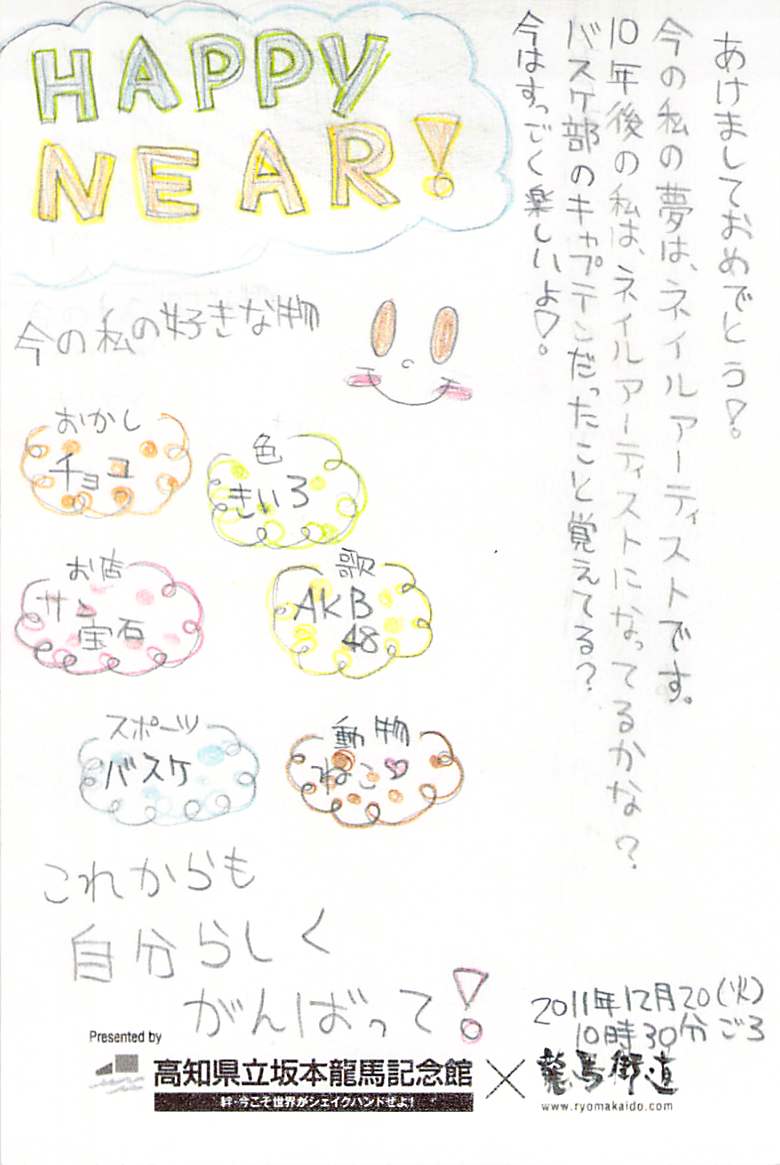 HAPPY
NEAR!
あけましておめでとう!。
今の私の夢は、ネイルアーティストです。
10年後の私は、ネイルアーティストになってるかな?
バスケ部のキャプテンだったこと覚えてる?
今はすっごく楽しいよ!。
今の私の好きな物
おかし
チョコ
色
きいろ
お店
サン宝石
歌
AKB
48
スポーツ
バスケ
動物
ねこ♡
これからも
自分らしく
がんばって!
2011年12月20(火)
10時30分ごろ
Presented by
高知県立坂本龍馬記念館×龍馬街道
絆・今こそ世界がシェイクハンドぜよ!
www.ryomakaido.com